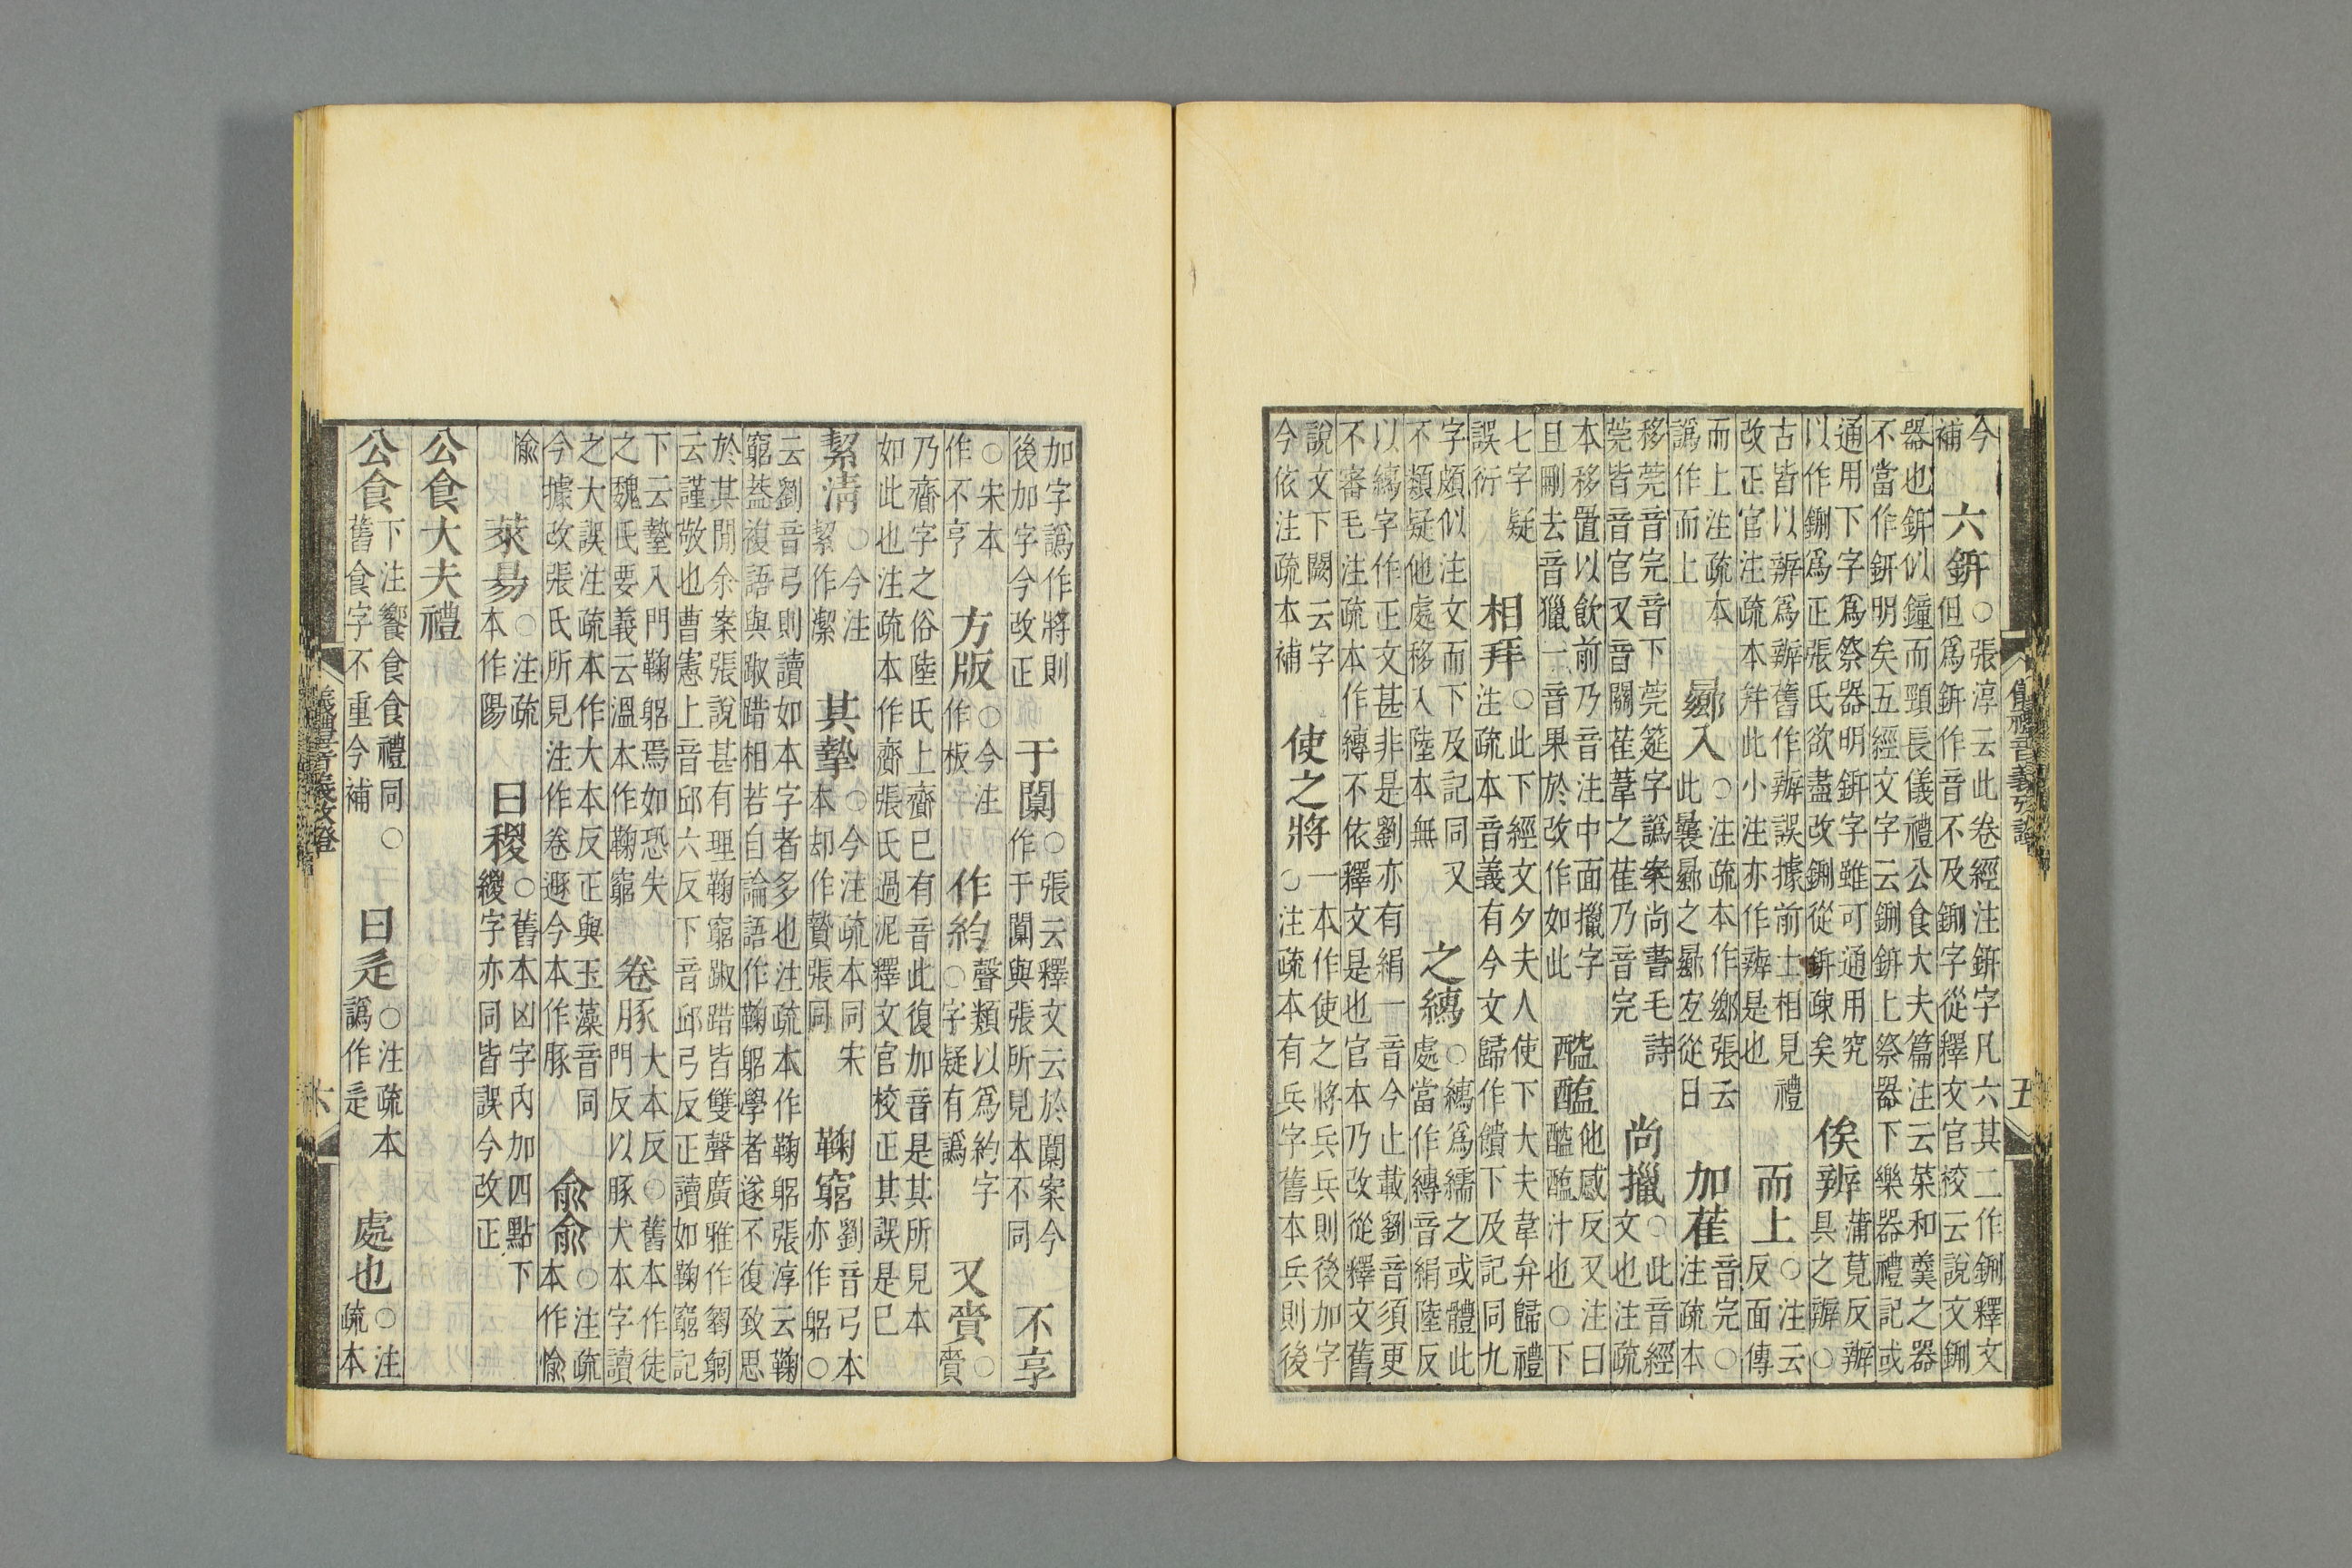 儀禮音義攷證
五
今
補
六鈃
○張淳云此卷經注鈃字凡六其二作鉶釋文
但爲鈃作音不及鉶字從釋文官校云說文鉶
器也鈃似鐘而頸長儀禮公食大夫篇注云菜和羹之器
不當作鈃明矣五經文字云鉶鈃上祭器下樂器禮記或
通用下字爲祭器明鈃字雖可通用究
以作鉶爲正張氏欲盡改鉶從鈃疎矣
俟辨
蒲莧反辦
具之辦○
古皆以辨爲辦舊作辦誤據前士相見禮
改正官注疏本幷此小注亦作辨是也
而上
○注云
反面傳
而上注疏本
譌作而上
曏入
○注疏本作鄉張云
此曩曏之曏宜從日
加萑
音完○
注疏本
移莞音完音下莞筵字譌案尚書毛詩
莞皆音官又音關萑葦之萑乃音完
尚擸
○此音經
文也注疏
本移置以飲前乃音注中面擸字
且剛去音獵一音果於改作如此
醓醢
他感反又注曰
醢醢汁也○下
七字疑
誤衍
相拜
○此下經文夕夫人使下大夫韋弁歸禮
注疏本音義有今文歸作饋下及記同九
字頗似注文而下及記同又
不類疑他處移入陸本無
之繐
○繐爲繻之或體此
處當作縳音絹陸反
以繐字作正文甚非是劉亦有絹一音今止載劉音須更
不審毛注疏本作縳不依釋文是也官本乃改從釋文舊
說文下闕云字
今依注疏本補
使之將
一本作使之將兵兵則後加字
○注疏本有兵字舊本兵則後
加字譌作將則
後加字今改正
于闑
○張云釋文云於闑案今
作于闑與張所見本不同
不享
○宋本
作不亨
方版
○今注
作板
作約
聲類以爲約字
○字疑有譌
又賷
○
賫
乃齎字之俗陸氏上齎已有音此復加音是其所見本
如此也注疏本作齎張氏過泥釋文官校正其誤是已
絜清
○今注
絜作潔
其摯
○今注疏本同宋
本却作贄張同
鞠窮
劉音弓本
亦作躬○
云劉音弓則讀如本字者多也注疏本作鞠躬張淳云鞠
窮葢複語與踧踖相若自論語作鞠躬學者遂不復致思
於其閒余案張說甚有理鞠窮踧踖皆雙聲廣雅作匑匔
云謹敬也曹憲上音邱六反下音邱弓反正讀如鞠窮記
下云摯入門鞠躬焉如恐失
之魏氏要義云溫本作鞠窮
卷豚
大本反○舊本作徒
門反以豚犬本字讀
之大誤注疏本作大本反正與玉藻音同
今據改張氏所見注作卷遯今本作豚
俞俞
○注疏
本作愉
愉
萊易
○注疏
本作陽
曰稯
○舊本凶字內加四點下
緵字亦同皆誤今改正
公食大夫禮
公食
下注饗食食禮同○
舊食字不重今補
曰辵
○注疏本
譌作辵
處也
○注
疏本
儀禮音義攷證
六